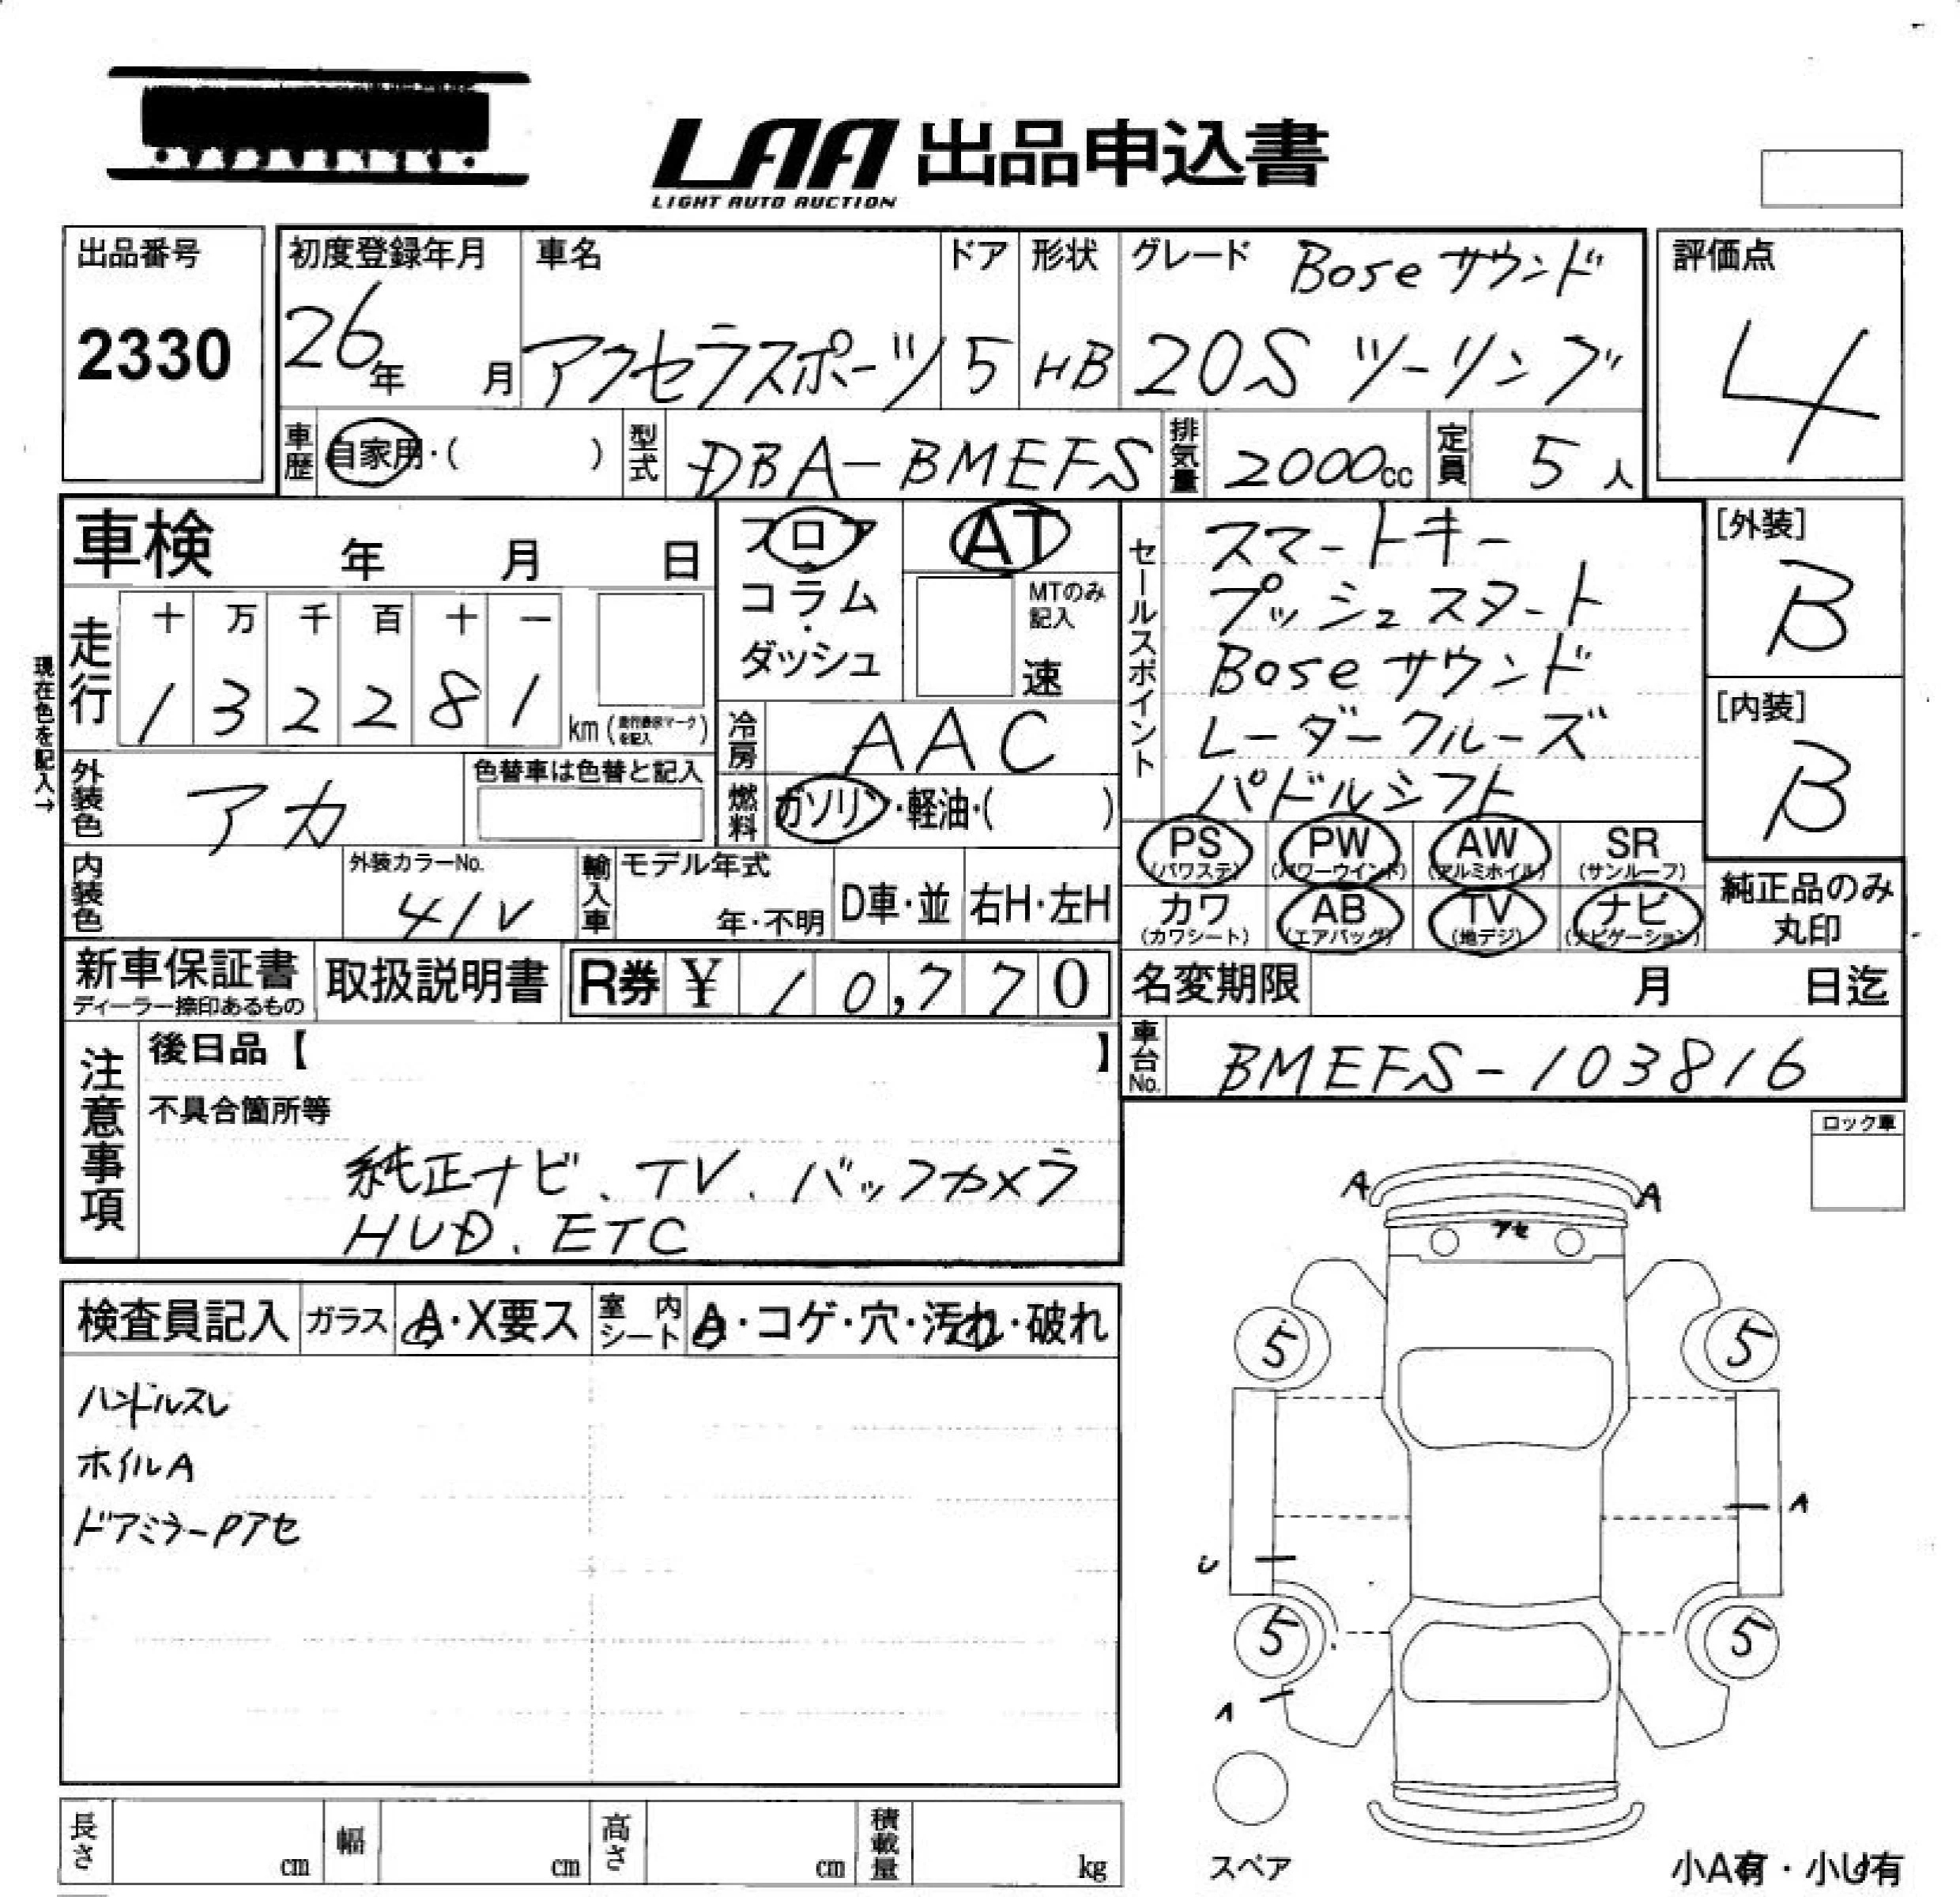 LAA 出品申込書
LIGHT AUTO AUCTION
出品番号
2330
初度登録年月
26年 月
車名
アクセラスポーツ
ドア
5
形状
HB
グレード Boseサウンド
20S ツーリング
評価点
4
車歴 自家用・( )
型式 DBA-BMEFS
排気量 2000cc
定員 5人
車検 年 月 日
フロア・コラム・ダッシュ
AT
MTのみ記入
速
セールスポイント
スマートキー
プッシュスタート
Boseサウンド
レーダークルーズ
パドルシフト
[外装]
B
[内装]
B
現在色を記入→
走行
十 万 千 百 十 一
1 3 2 2 8 1 km (走行表示マークを記入)
冷房 AAC
外装色 アカ
色替車は色替と記入
燃料 ガソリン・軽油・( )
PS (パワステ)
PW (パワーウインド)
AW (アルミホイル)
SR (サンルーフ)
内装色
外装カラーNo.
41V
輸入車
モデル年式
年・不明
D車・並
右H・左H
カワ (カワシート)
AB (エアバッグ)
TV (地デジ)
ナビ (ナビゲーション)
純正品のみ丸印
新車保証書
ディーラー捺印あるもの
取扱説明書
R券 ¥ 10,770
名変期限 月 日迄
車台No. BMEFS-103816
注意事項
後日品【 】
不具合箇所等
純正ナビ、TV、バックカメラ
HUD、ETC
ロック車
A A
アセ
検査員記入
ガラス A・X要ス
室内シート A・コゲ・穴・汚れ・破れ
ハンドルスレ
ホイルA
ドアミラーPアセ
5 5
A
U
5 5
A
スペア
小A有・小U有
長さ cm
幅 cm
高さ cm
積載量 kg